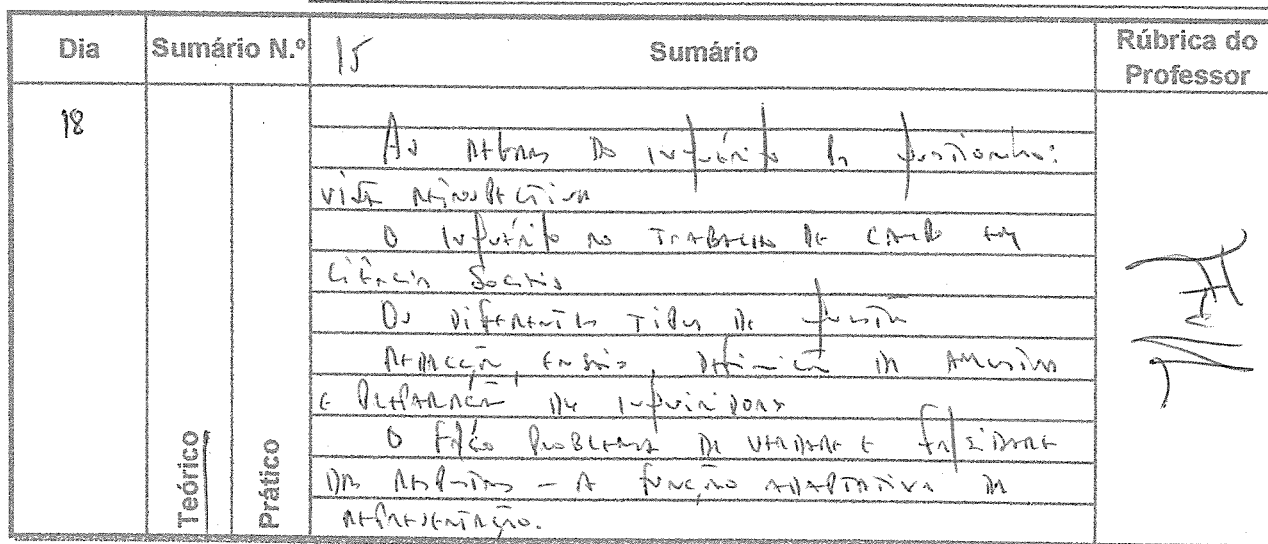 Dia Sumário N.º 15 Sumário Rúbrica do Professor
18
As regras do inquérito por questionário:
vista retrospectiva
O inquérito no trabalho de campo em
Ciências Sociais
Os diferentes tipos de questão
Redacção, ensaio, definição da amostra
e preparação de inquiridores
O falso problema de verdade e falsidade
das respostas - A função adaptativa da
representação.
Teórico
Prático